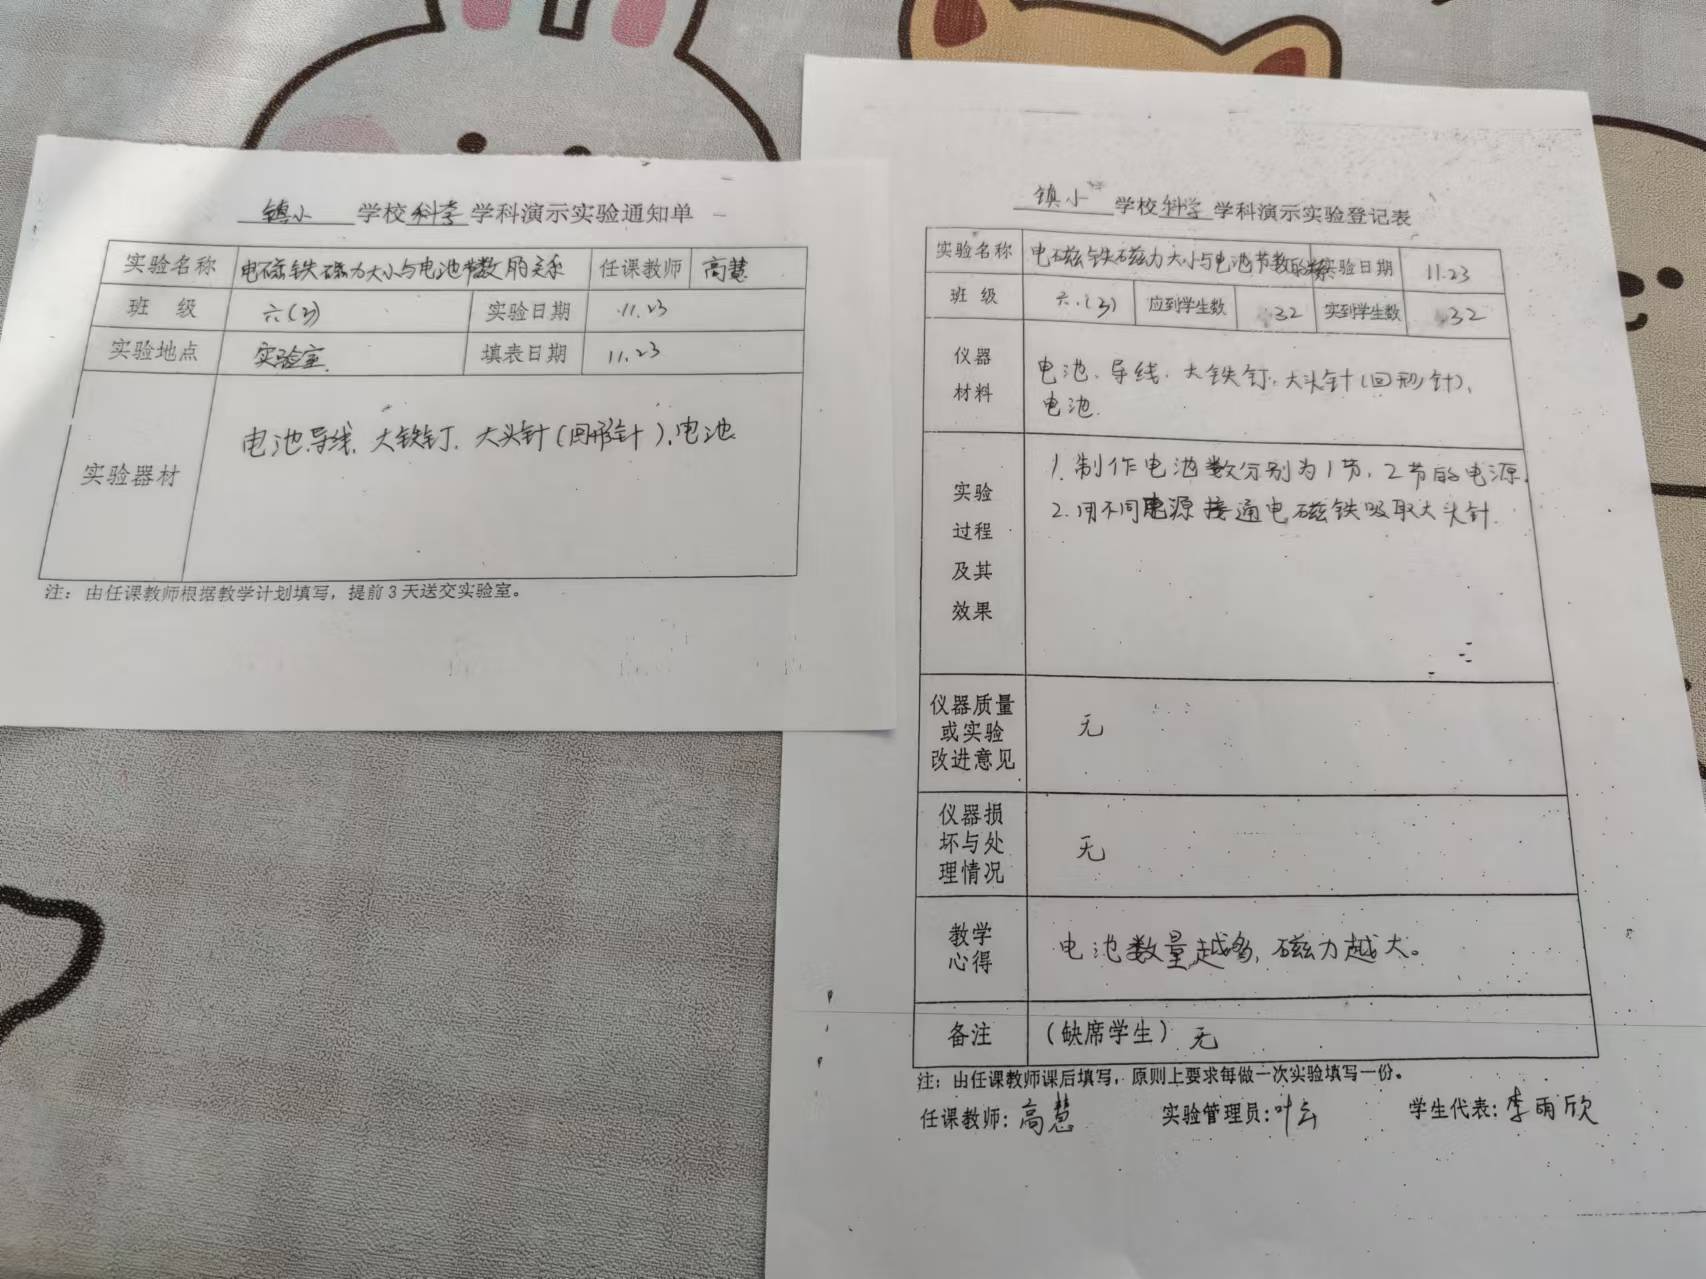 镇小 学校 科学 学科演示实验通知单
实验名称 电磁铁磁力大小与电池节数的关系 任课教师 高慧
班 级 六(3) 实验日期 11.23
实验地点 实验室 填表日期 11.23
实验器材 电池.导线.大铁钉.大头针(回形针).电池
注：由任课教师根据教学计划填写，提前3天送交实验室。
镇小 学校 科学 学科演示实验登记表
实验名称 电磁铁磁力大小与电池节数的关系 实验日期 11.23
班 级 六.(3) 应到学生数 32 实到学生数 32
仪器
材料
电池.导线.大铁钉.大头针(回形针).
电池.
实验
过程
及其
效果
1.制作电池数分别为1节，2节的电源.
2.用不同电源接通电磁铁吸取大头针.
仪器质量
或实验
改进意见
无
仪器损
坏与处
理情况
无
教学
心得
电池数量越多，磁力越大。
备注 (缺席学生) 无
注：由任课教师课后填写，原则上要求每做一次实验填写一份。
任课教师：高慧 实验管理员：叶云 学生代表：李雨欣